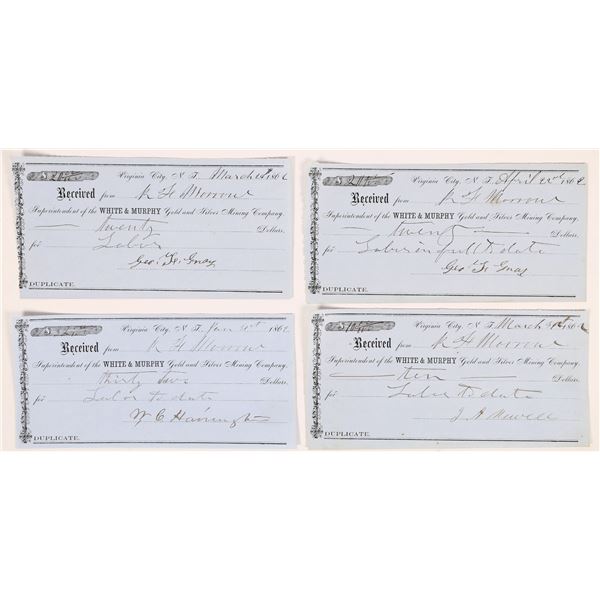 Virginia City, N. T. March 186
Received from R H Morrow
Superintendent of the WHITE & MURPHY Gold and Silver Mining Company.
twenty Dollars.
for Labor
Geo. H. Gray
DUPLICATE.
Virginia City, N. T. April 186
Received from R H Morrow
Superintendent of the WHITE & MURPHY Gold and Silver Mining Company.
twenty Dollars.
for Labor in full to date
Geo H Gray
DUPLICATE.
Virginia City, N. T. Jan 186
Received from R H Morrow
Superintendent of the WHITE & MURPHY Gold and Silver Mining Company.
thirty two Dollars.
for Labor to date
W C Harrington
DUPLICATE.
Virginia City, N. T. March 186
Received from R H Morrow
Superintendent of the WHITE & MURPHY Gold and Silver Mining Company.
ten Dollars.
for Labor to date
J A Newell
DUPLICATE.